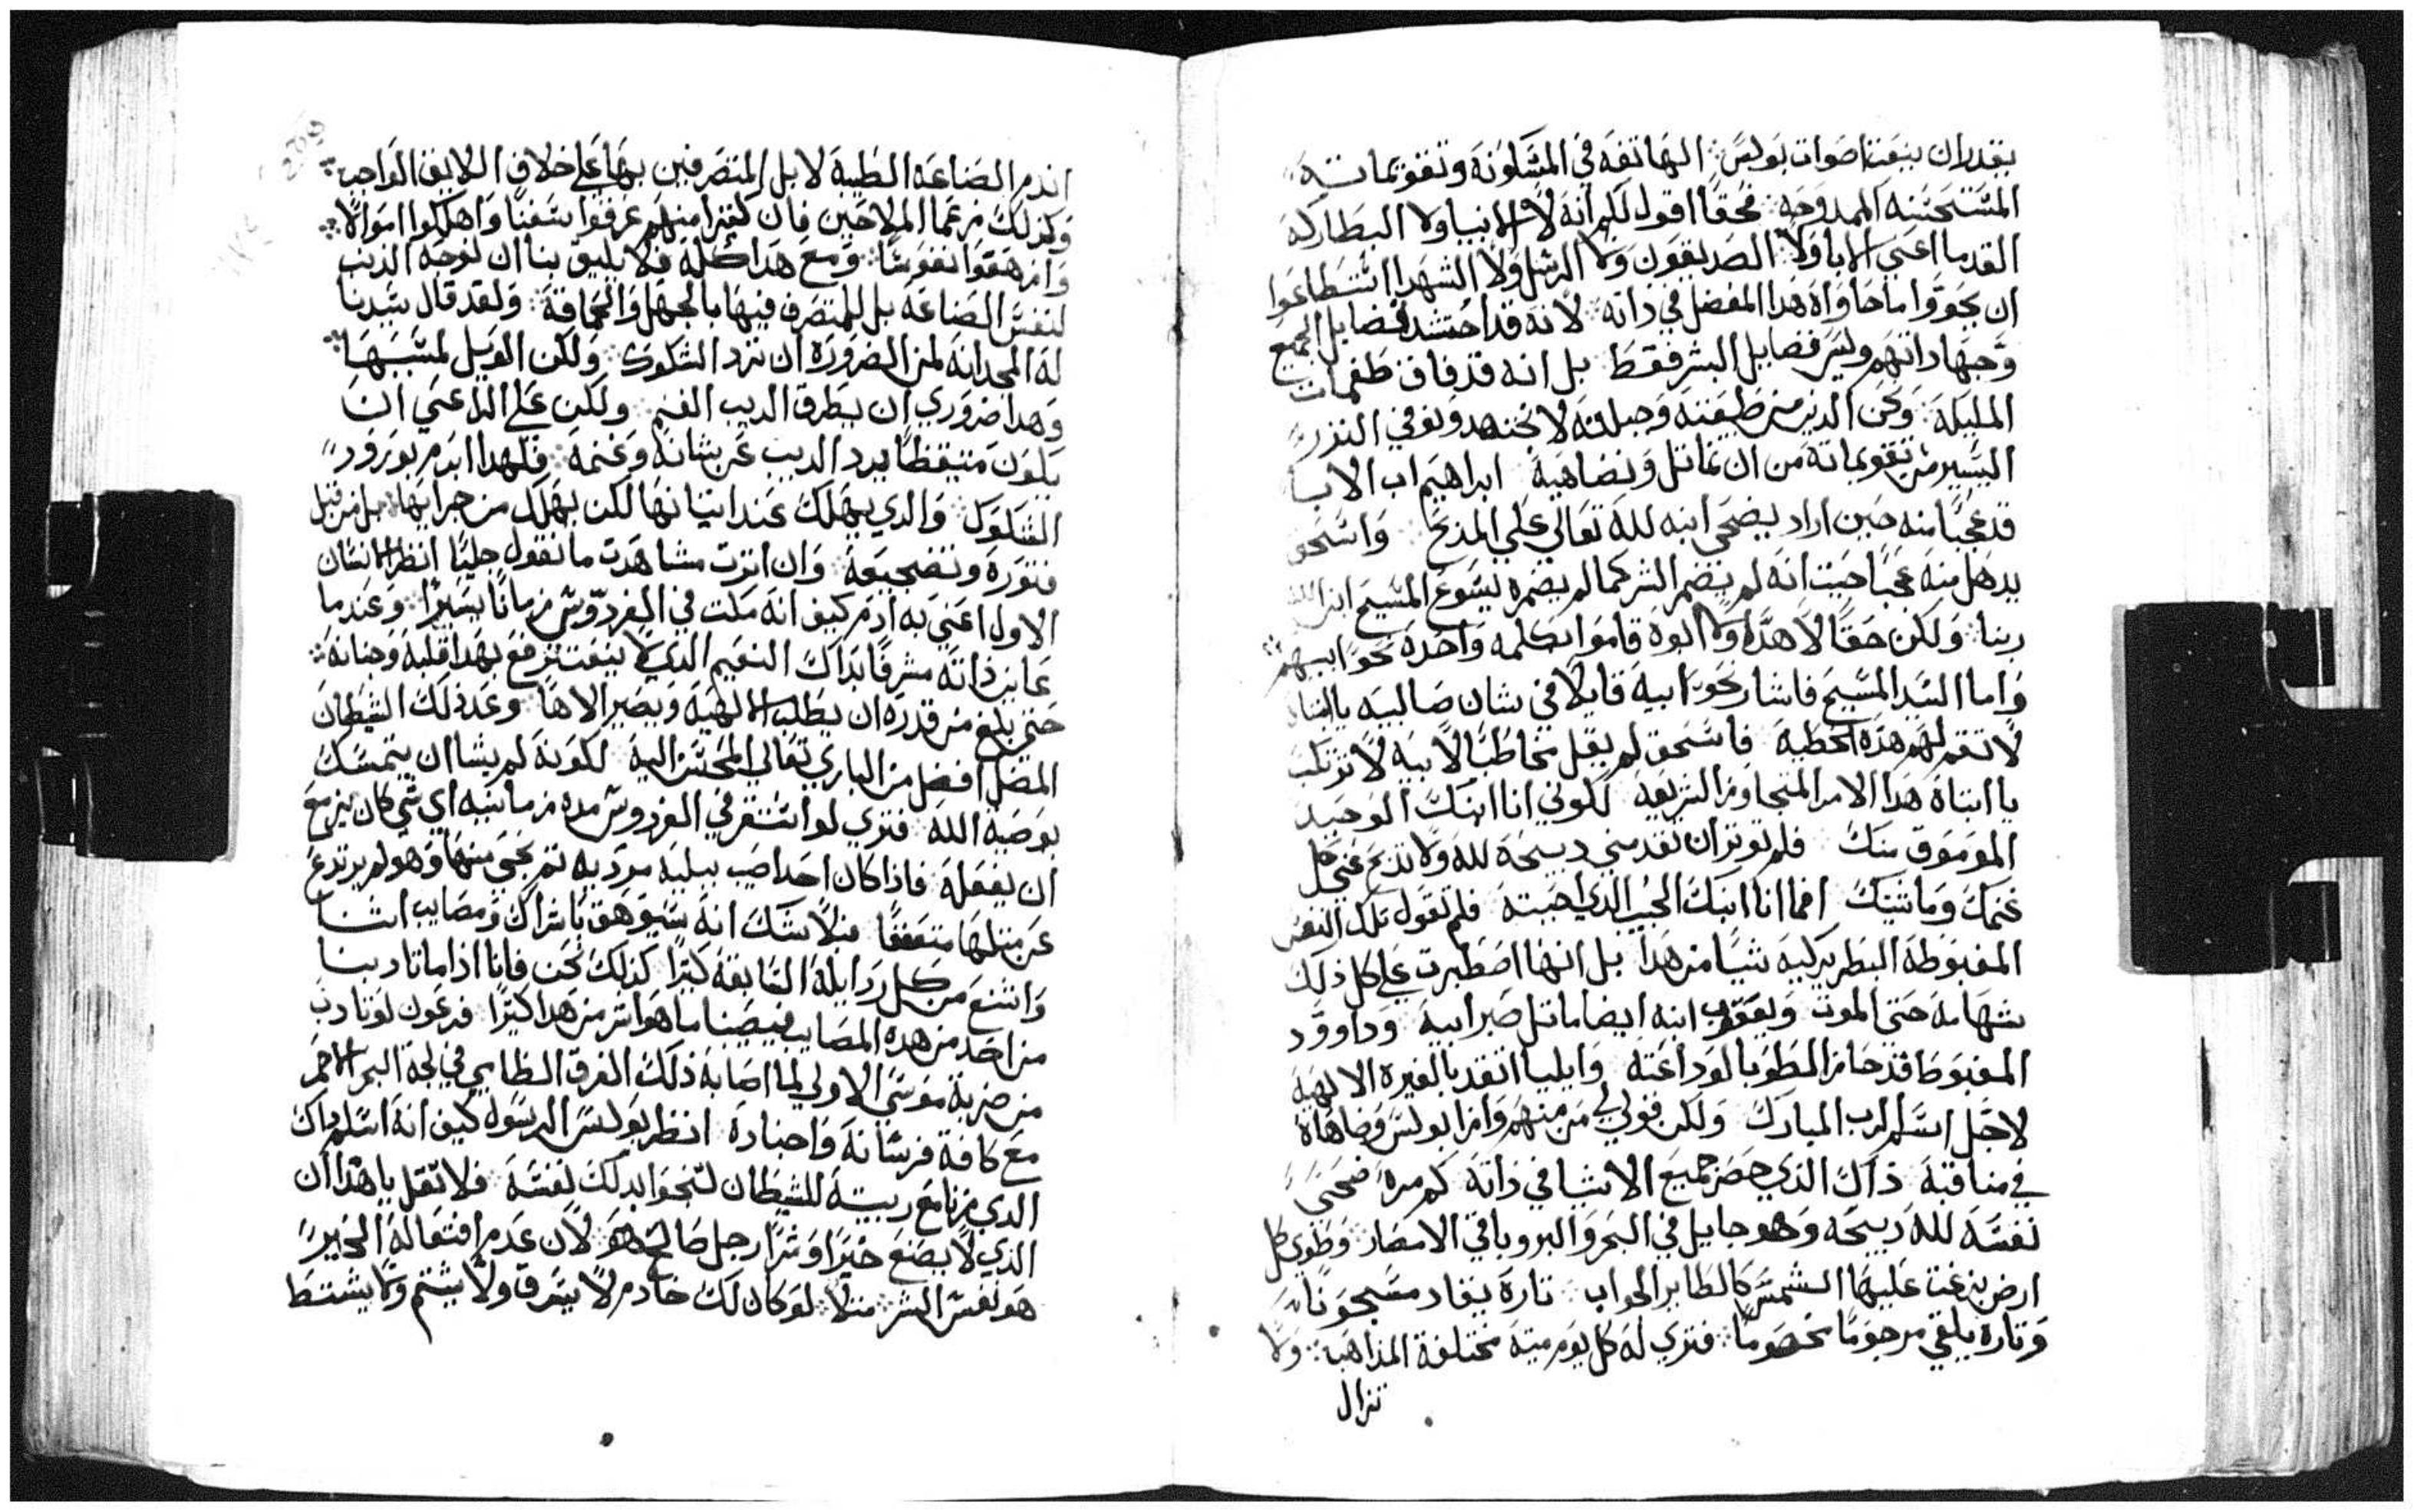 يقدر ان ينعت اصوات بولس الهاتفه في المسكونة وتقوتماته
المستحسنه الممدوحه فحقا اقول لكم انه لا الانبيا ولا البطاركه
القدما اعني الابا ولا الصديقون ولا الرسل ولا الشهدا استطاعوا
ان يحووا ما حاواه هدا المفضل في داته لانه قد احتشد فضايل الجميع
وجهاداتهم وليس فضايل البشر فقط بل انه قد فاق طغمات
المليكة ونحن الدين من طبيعته وجبلته لا نجتهد ونوفي النزر
اليسير من تقويماته من ان نماتل ونضاهية ابراهيم اب الابا
قد عجبا منه حين اراد يضحي ابنه لله تعالي علي المدبح واسحق
يدهل منه عجبا حيت انه لم يضمر الشر كما لم يضمره يسوع المسيح ابن الله
ربنا ولكن حقا لا هدا ولا الوه قاموا بكلمه واحده نحو ابيهم
واما السيد المسيح فاشار نحو ابيه قايلا في شان صالبيه يا ابتاه
لا تقم لهم هده الخطية فاسحق لم يقل مخاطبا لابيه لا ترتكب
يا ابتاه هدا الامر المتجاوز الشريعه لكوني انا ابنك الوحيد
الموموق منك فلم توتر ان تقدمني دبيحة لله ولا تدبح عني كل
غنمك وماشيتك افما انا ابنك الحبيب الدي احببته فلم تقول تلك النفس
المغبوطة البطريركيه شيا من هدا بل انها اصطبرت علي كل ذلك
بشهامه حتي الموت ويعقوب ابنه ايضا ماتل صبر ابيه وداوود
المغبوط قد حاز الطوبا لوداعته وايليا اتقد بالغيره الالهيه
لاجل اسم الرب المبارك ولكن قولي لي من منهم وازا بولس وضاهاه
في مناقبة ذاك الذي حصر جميع الاشيا في داتة كم مره ضحي
نفسه لله دبيحه وهو جايل في البحر والبر وباقي الامصار وطوي كل
ارض بزغت عليها الشمس كالطاير الجواب تارة يقاد مسجونا
وتارة يلقي مرجوما مخصوما فتري له كل يوم ميته مختلفة المداهب ولا
تزال
اندم الصناعه الطبية لا بل المتصرفين بها علي خلاف اللايق الواجب
وكذلك زعما الملاحين فان كتيرا منهم غرقوا سفنا واهلكوا اموالا
وازهقوا نفوسا ومع هدا كله فلا يليق بنا ان نوجه الذنب
لنفس الصناعه بل للمتصرف فيها بالجهل والحماقة ولقد قال سيدنا
له المجد انه لمن الضروره ان ترد الشكوك ولكن الويل لمسببها
وهدا ضروري ان يطرق الديب الغنم ولكن علي الراعي ان
يكون متيقظا يرد الديب عن شانه وغنمه فلهدا لزم بورود
الشكوك والدي يهلك عند اتيانها لكن يهلك من جرايها بل من قبل
فتوره وتضجيعه وان اترت مشاهدت ما نقول جليا انظر الانسان
الاول اعني به ادم كيف انه مكت في الفردوس زمانا يسيرا وعندما
عاين ذاته مشرفا بداك النعيم الدي لا ينعت ترفع بهدا قلبه وجنانه
حتي بلغ من قدره ان يطلب الالهيه ويصير الاها وعد ذلك الشيطان
المضل افضل من الباري تعالي المحسن اليه لكونه لم يشا ان يتمسك
بوصية الله فتري لو استقر في الفردوس مده زمانيه اي شي كان يزمع
ان يفعله فاذا كان احد اصيب ببليه مرديه تم نجي منها وهو لم يرتدع
عن متلها متعففا فلا شك انه سيوهق باشراك ومصايب اشنا
وامتنع من كل ردايله السابقة كترا كذلك نحن فانا اذا ما تادبنا
من احد من هده المصايب فيصبنا ما هو اشر من هدا كتيرا فرعون لو تادب
من ضربة موسي الاولي لما اصابه ذلك الغرق الطامي في لجة البحر الاحمر
مع كافة فرسانه واجناده انظر بولس الرسول كيف انه اسلم داك
الدي زنا مع ربيبته للشيطان لتنجوا بدلك نفسه فلا تقل يا هدا ان
الدي لا يصنع خيرا وشرا رجل صالح هو لان عدم افتعاله الخير
هو نفس الشر متلا لو كان لك خادم لا يسرق ولا يشتم ولا يشتط